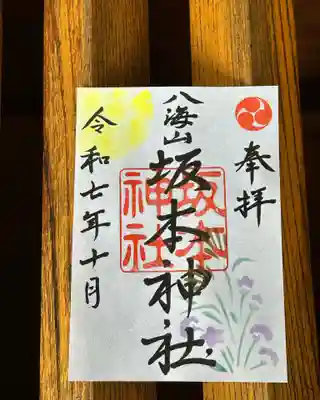 奉拝
八海山 坂本神社
坂本
神社
令和七年十月